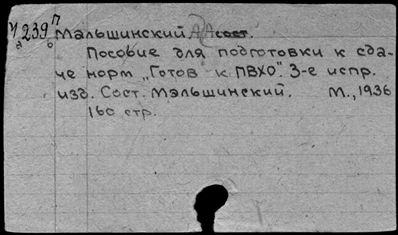 Ч 239 П
а б
Мальшинский А А сост.
Пособие для подготовки к сда-
че норм „Готов к ПВХО". 3-е испр.
изд. Сост. Мальшинский. М., 1936
160 стр.